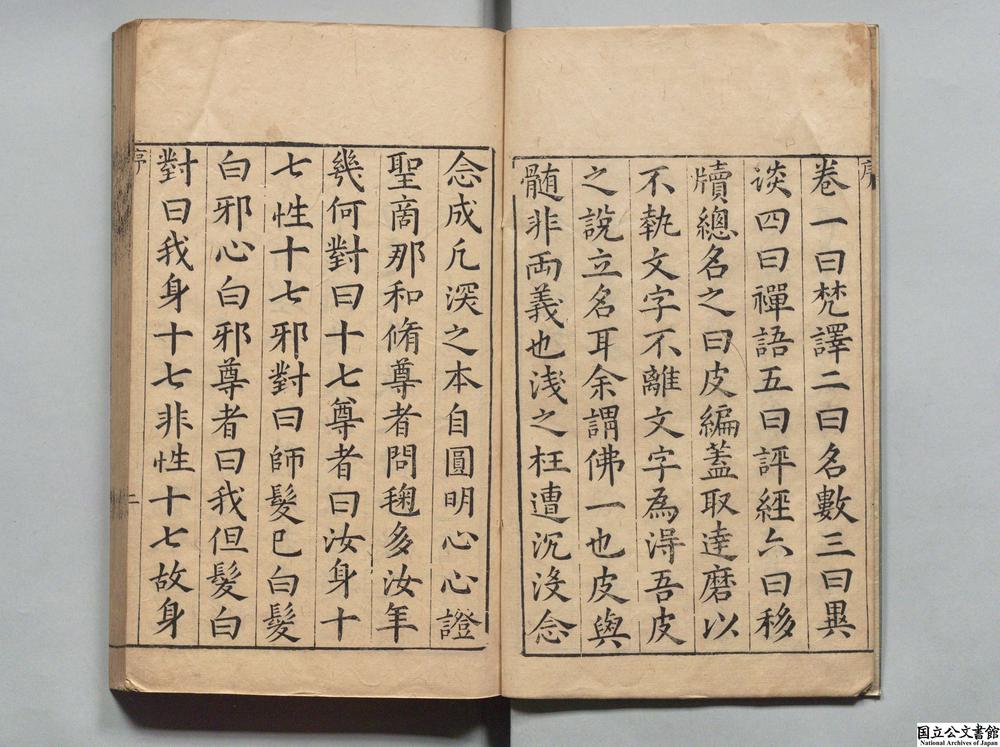 序
卷一曰梵譯二曰名數三曰異
談四曰禪語五曰評經六曰移
牘總名之曰皮編蓋取達磨以
不執文字不離文字為淂吾皮
之說立名耳余謂佛一也皮與
髄非両義也浅之枉遭沉没念
念成凢深之本自圓明心心證
聖啇那和脩尊者問毱多汝年
幾何對曰十七尊者曰汝身十
七性十七邪對曰師髮已白髮
白邪心白邪尊者曰我但髮白
對曰我身十七非性十七故身
序
二
国立公文書館
National Archives of Japan